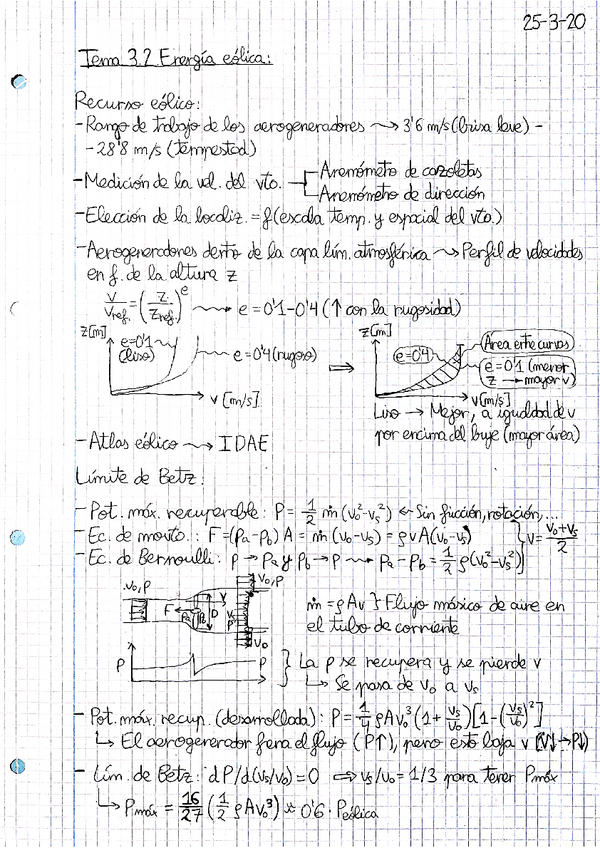 25-3-20
Tema 3.2. Energía eólica:
Recurso eólico:
- Rango de trabajo de los aerogeneradores ⟿ 3'6 m/s (brisa leve) -
- 28'8 m/s (tempestad)
- Medición de la vel. del vto. Anemómetro de cazoletas
Anemómetro de dirección
- Elección de la localiz. = f(escala temp. y espacial del vto.)
- Aerogeneradores dentro de la capa lím. atmosférica ⟿ Perfil de velocidades
en f. de la altura z
V/Vref. = (Z/Zref.)^e ⟿ e = 0'1-0'4 (↑ con la rugosidad)
z[m] e=0'1 (liso) e=0'4 (rugoso) v [m/s] ⇒ z[m] e=0'4 Área entre curvas
e=0'1 (menor z → mayor v) v[m/s]
Liso → Mejor, a igualdad de v
por encima del buje (mayor área)
- Atlas eólico ⟿ IDAE
Límite de Betz:
- Pot. máx. recuperable: P = 1/2 ṁ (v₀²-vₛ²) ← Sin fricción, rotación,...
- Ec. de mouto.: F=(pa-pb) A = ṁ (v₀-vₛ) = ρvA(v₀-vₛ)
- Ec. de Bernoulli: p → pa y pb → p ⟿ pa-pb = 1/2 ρ(v₀²-vₛ²) } v = (v₀+vₛ)/2
v₀, p F pa pb D v v₀, p vₛ p v₀
ṁ = ρAv } Flujo másico de aire en
el tubo de corriente
p p } La p se recupera y se pierde v
↳ Se pasa de v₀ a vₛ
- Pot. máx. recup. (desarrollada): P = 1/4 ρAv₀³ (1+ vₛ/v₀)[1-(vₛ/v₀)²]
↳ El aerogenerador frena el flujo (P↑), pero esto baja v [v↓→P↓]
- Lím. de Betz: dP/d(vₛ/v₀)=0 ⇒ vₛ/v₀ = 1/3 para tener Pmáx
↳ Pmáx = 16/27 (1/2 ρAv₀³) ≈ 0'6 · Peólica